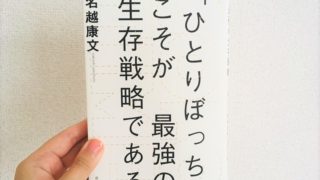 「ひとりぼっち
こそが 最強の
生存戦略である
名越康文